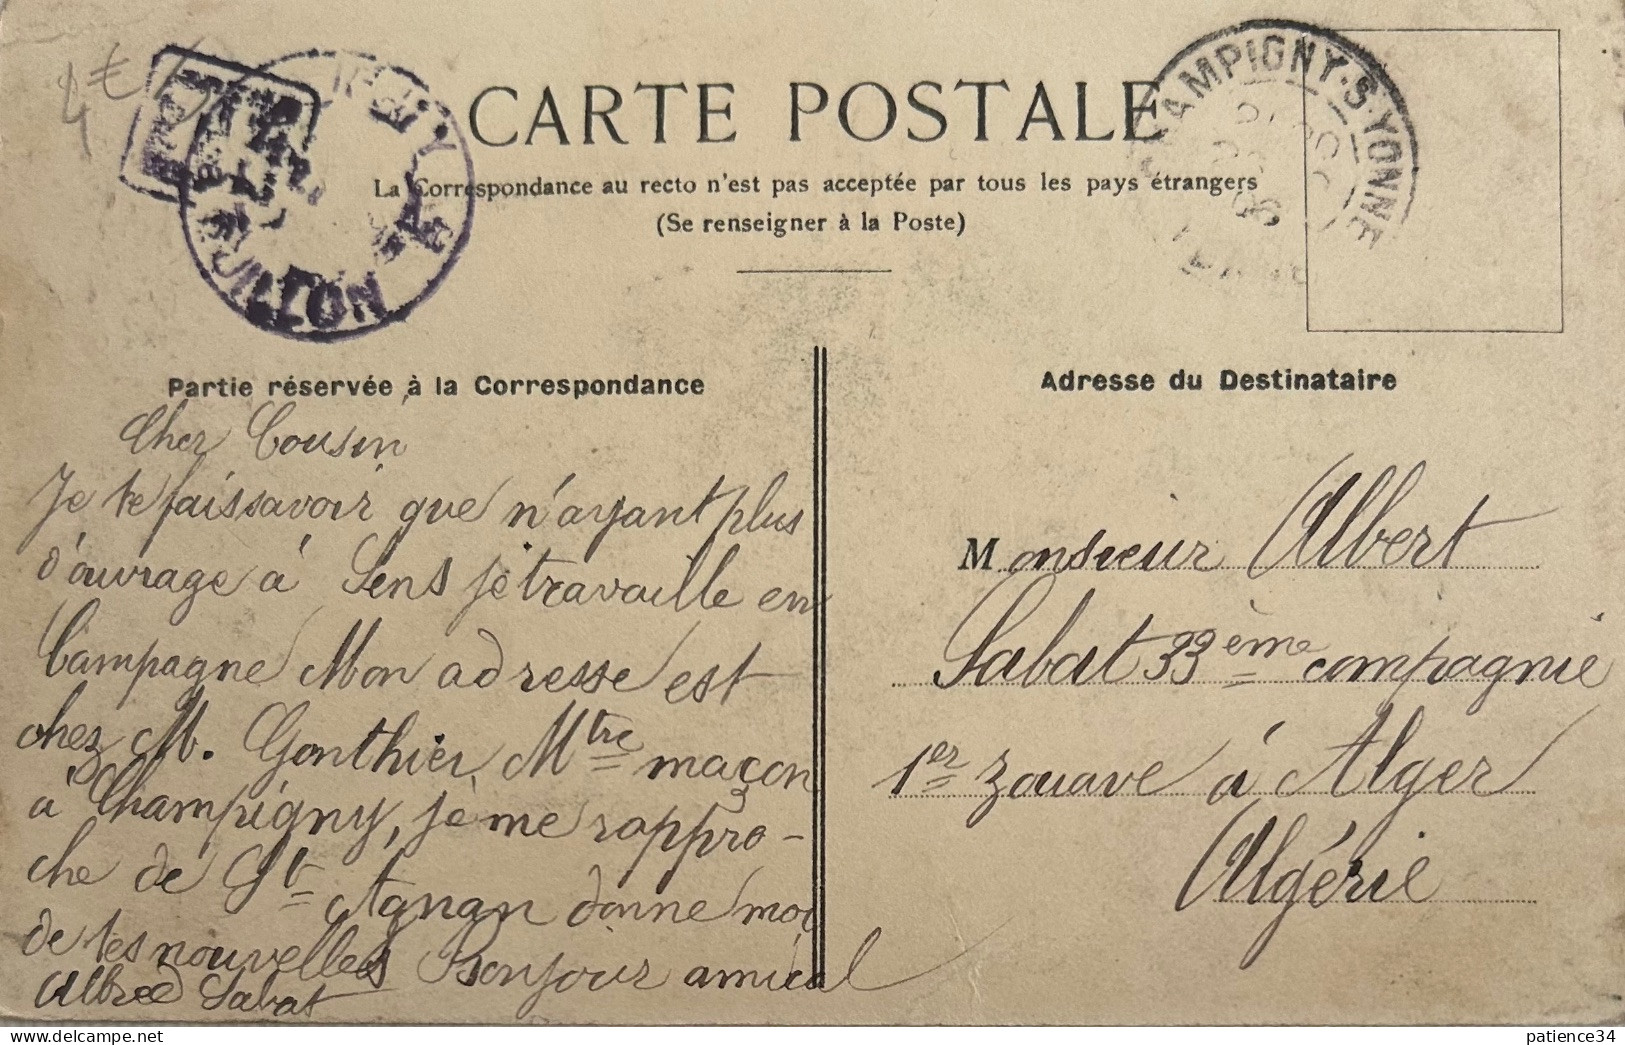 4€
CARTE POSTALE
La Correspondance au recto n'est pas acceptée par tous les pays étrangers
(Se renseigner à la Poste)
CHAMPIGNY·S·YONNE
06
Partie réservée à la Correspondance
Cher Cousin
Je te fais savoir que n'ayant plus
d'ouvrage à Sens je travaille en
Campagne Mon adresse est
chez M. Gonthier, Mtre maçon
à Champigny, je me rappro-
che de St Agnan donne moi
de tes nouvelles Bonjour amical
Albred Sabat
Adresse du Destinataire
Monsieur Albert
Sabat 33ème compagnie
1er zouave à Alger
Algérie
patience34